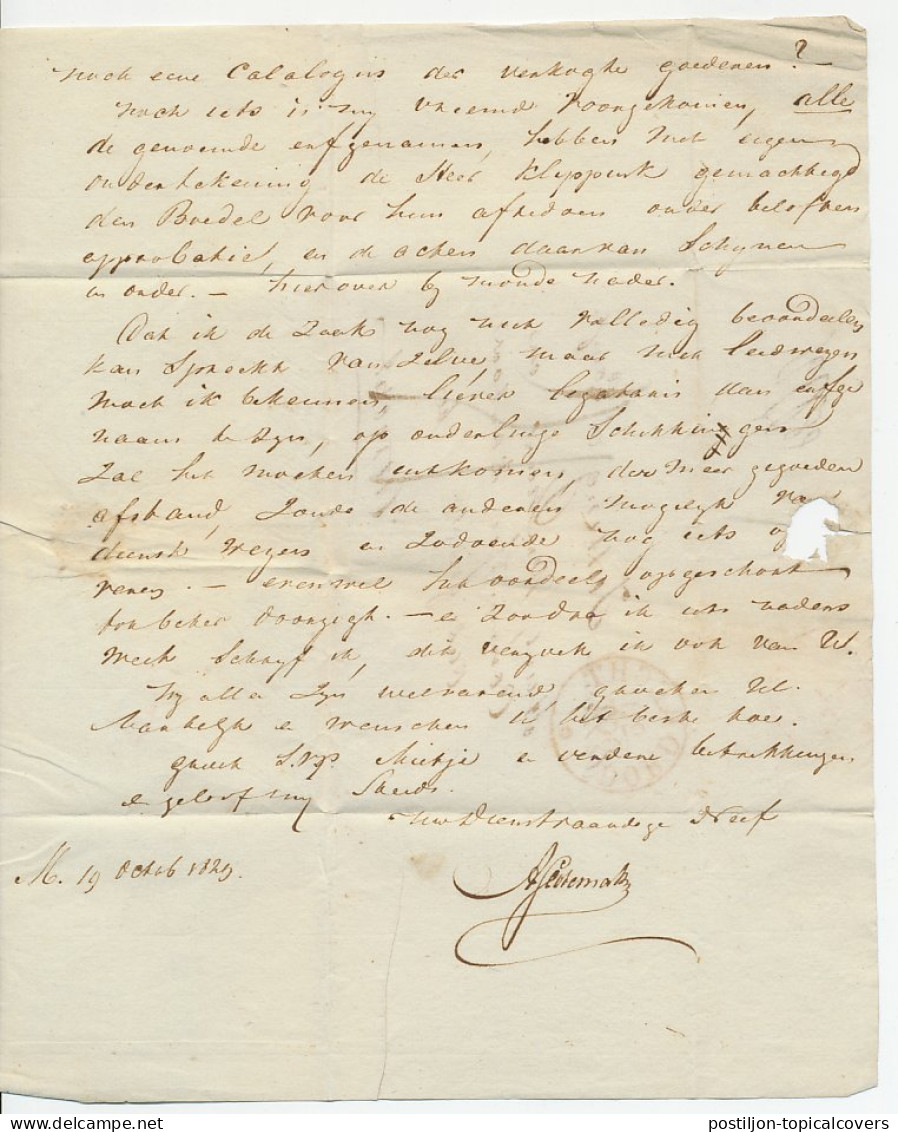 ?
noch eene Catalogus der verkogte goederen? –
Noch iets is my vreemd voorgekomen, alle
de genoemde erfgenamen, hebben met eigen
ondertekening de Heer Klyppink gemachtigd
den Boedel voor hun afredoen onder belofte van
approbatie, en de actens daarvan Schynen
er onder. – hierover by monde nader.
Dat ik de Zaak nog niet volledig beoordeelen
kan Spreekt van Zelve, maar met leedwezen
moet ik bekennen, liever legataris dan erfge
naam te zyn, op onderlinge Schikkingen
Zal het moeten uitkomen, der meer gegoeden
afstand, Zoude de anderen mogelyk van
dienst wezen en Zodoende nog iets
– evenwel het voordeels opgeschort
tot beter doorzigt. – en Zoodra ik iets naders
weet Schryf ik, dit verzoek ik ook van U.
Wy allen Zyn welvarend, groeten U.
Hartelyk en wenschen U het beste toe.
groet S.V.P. Mietje en verdere betrekkingen
en geloof my Steeds.
Uw Dienstvaardige Neef
M. 19 Octob 1829.
postiljon-topicalcovers